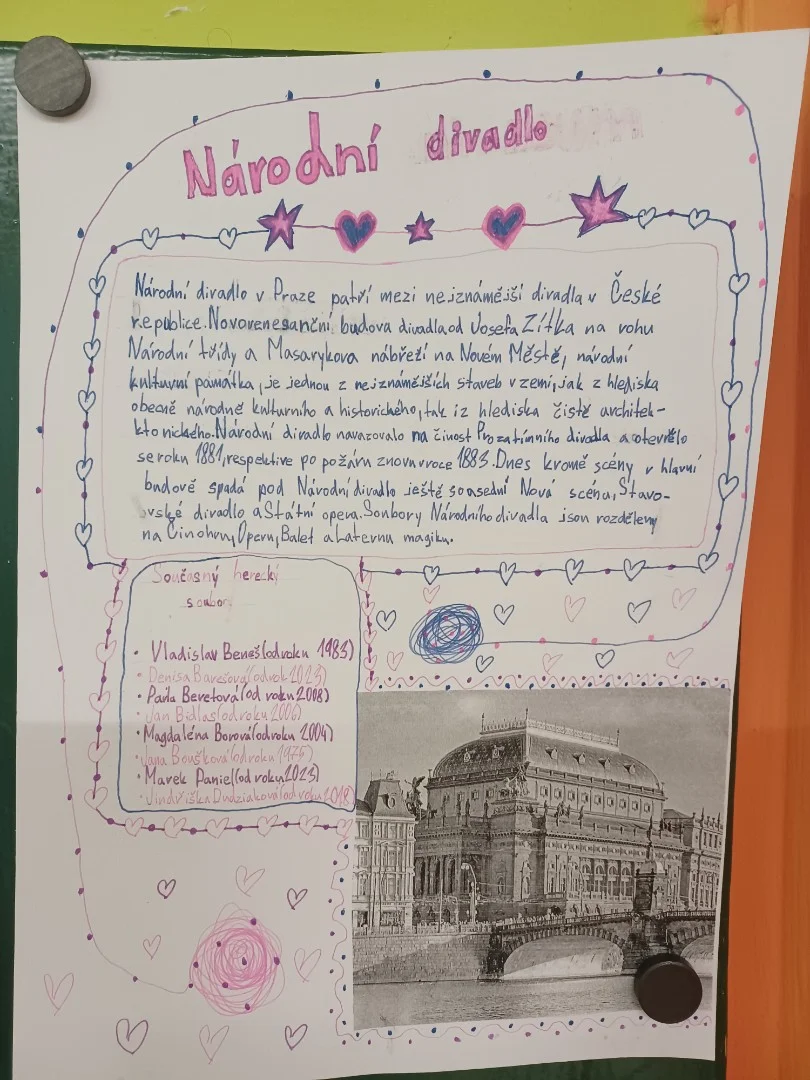 Národní divadlo
Národní divadlo v Praze patří mezi nejznámější divadla v České
republice. Novorenesanční budova divadla od Josefa Zítka na rohu
Národní třídy a Masarykova nábřeží na Novém Městě, národní
kulturní památka, je jednou z nejznámějších staveb v zemi, jak z hlediska
obecně národně kulturního a historického, tak i z hlediska čistě architek-
ktonického. Národní divadlo navazovalo na činost Prozatímního divadla a otevřelo
se roku 1881, respektive po požáru znovu v roce 1883. Dnes kromě scény v hlavní
budově spadá pod Národní divadlo ještě sousední Nová scéna, Stavo-
vské divadlo a Státní opera. Soubory Národního divadla json rozděleny
na Činohru, Operu, Balet a Laternu magiku.
Současný herecký
soubor
• Vladislav Beneš (od roku 1983)
• Denisa Barešová (od rok 2023)
• Pavla Beretová (od roku 2008)
• Jan Bidlas (od roku 2006)
• Magdaléna Borová (od roku 2004)
• Jana Boušková (od roku 1975)
• Marek Daniel (od roku 2023)
• Jindřiška Dudziaková (od roku 2018)